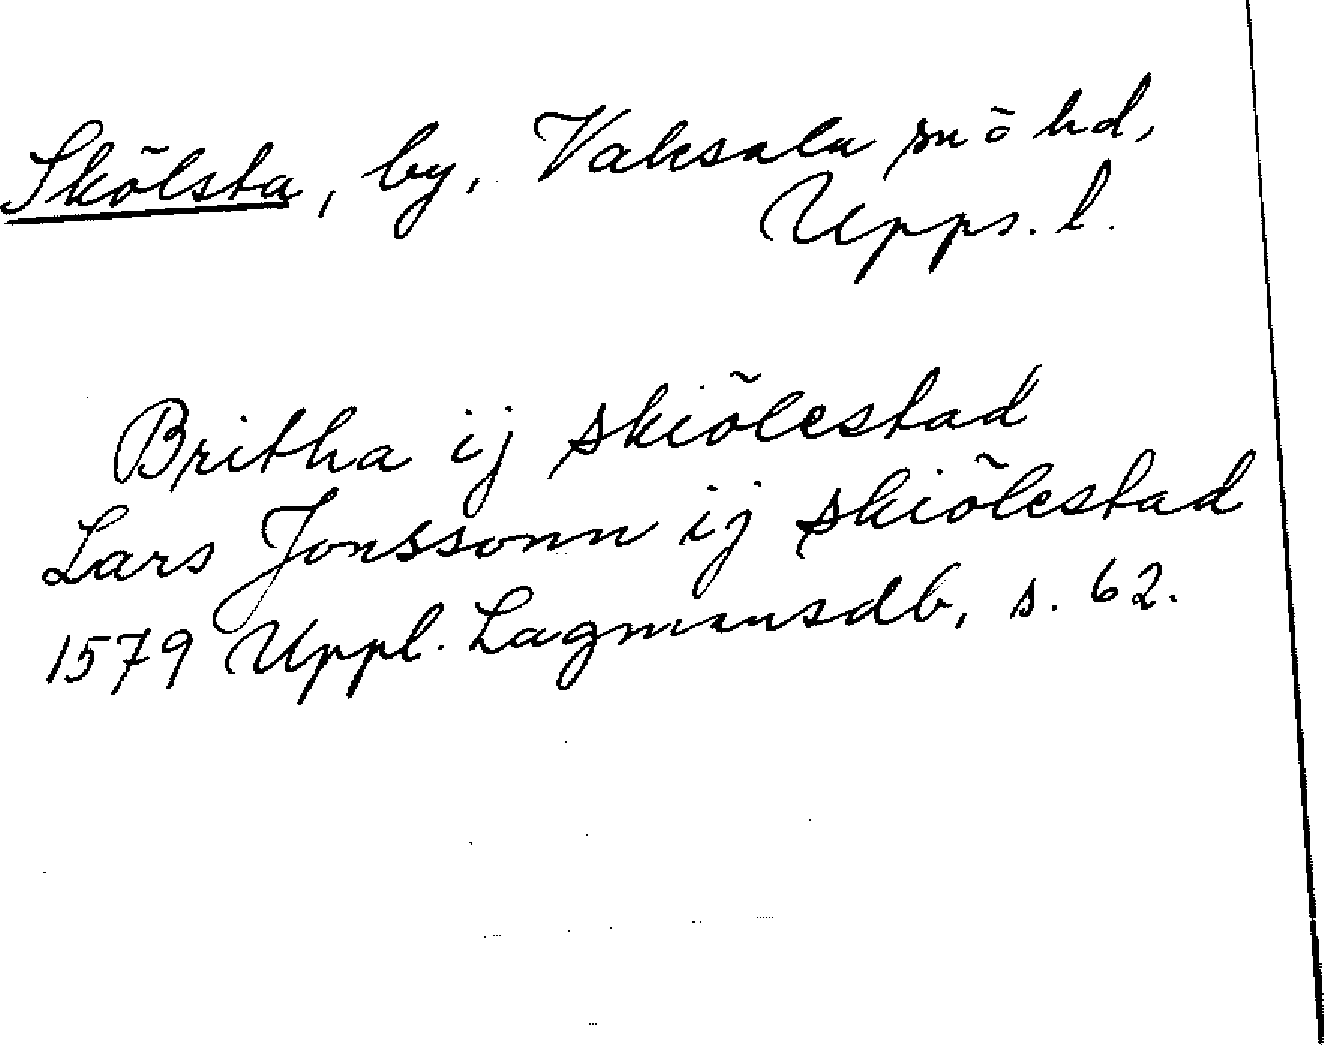 Skölsta, by, Vaksala sn o hd,
Upps. l.
Britha ij skiölestad
Lars Jonssonn ij skiölestad
1579 Uppl. Lagmansdb, s. 62.